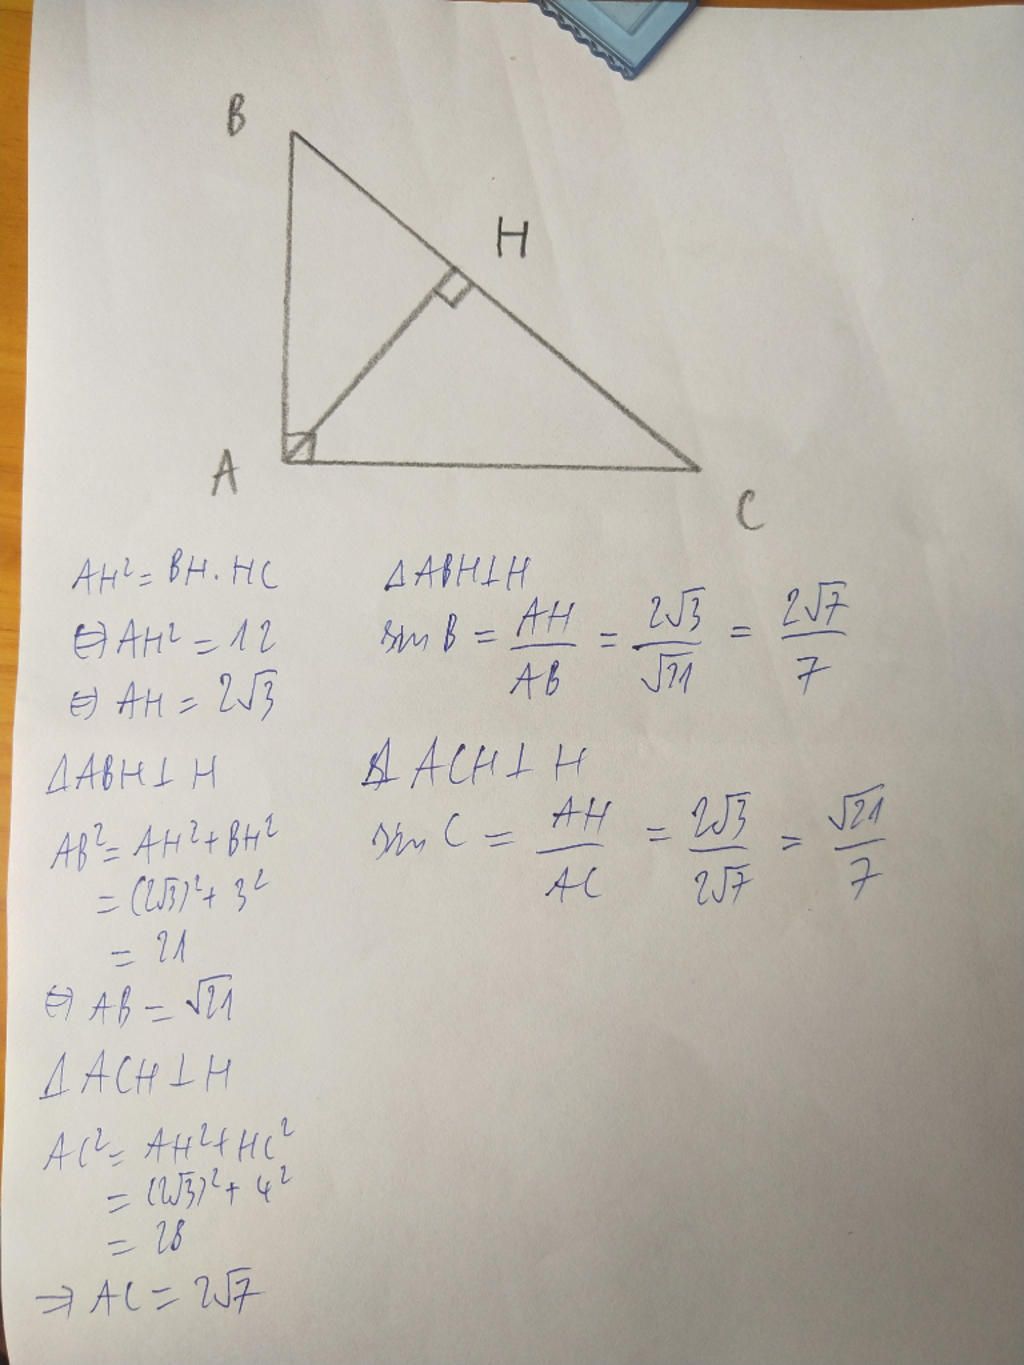 B
H
A
C
AH² = BH. HC
⇔ AH² = 12
⇔ AH = 2√3
ΔABH⊥H
AB² = AH² + BH²
= (2√3)² + 3²
= 21
⇔ AB = √21
ΔACH⊥H
AC² = AH² + HC²
= (2√3)² + 4²
= 28
⇒ AC = 2√7
ΔABH⊥H
sin B = AH/AB = 2√3/√21 = 2√7/7
ΔACH⊥H
sin C = AH/AC = 2√3/2√7 = √21/7